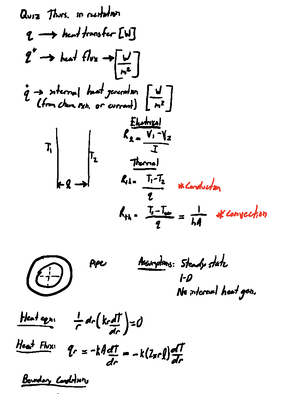 Quiz Thurs. in recitation
q → heat transfer [W]
q" → heat flux → [W/m²]
q̇ → internal heat generation [W/m²]
(from chem. rxn. or current)
Electrical
R_l = (V₁-V₂)/I
T₁ T₂
Thermal
R_th = (T₁-T₂)/q *Conduction
l
R_th = (T_s-T_∞)/q = 1/(hA) *convection
pipe
Assumptions: Steady state
1-D
No internal heat gen.
Heat eqn: 1/r dr(kr dT/dr) = 0
Heat Flux: q_r = -kA dT/dr = -k(2πrl) dT/dr
Boundary Conditions